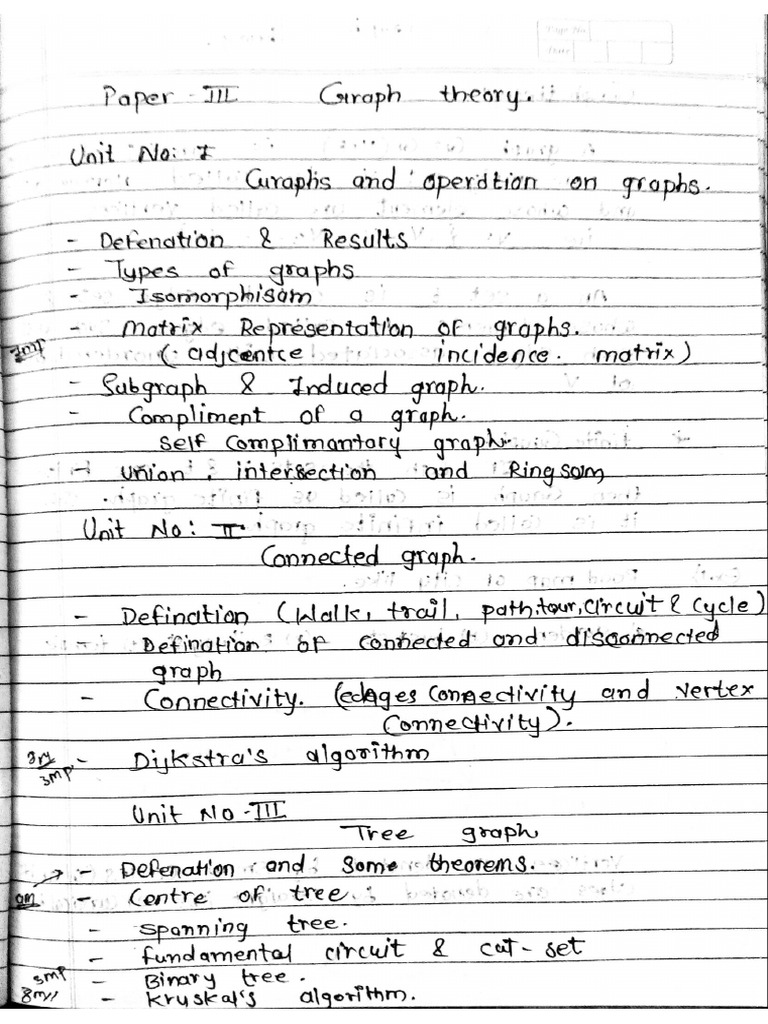 Page No.
Date
Paper - III Graph theory.
Unit No: I
Graphs and operdtion on graphs.
- Defenation & Results
- Types of graphs
- Isomorphisam
- Matrix Representation of graphs.
(: adjcentce incidence. matrix)
- Subgraph & Induced graph.
- Compliment of a graph.
self complimantory graph.
- Union, intersection and Ringsom
Unit No: II
Connected graph.
- Defination (Walk, trail, path, tour, circuit & cycle)
- Defination of connected and disconnected
graph
- Connectivity. (edages Connectivity and vertex
Connectivity).
3mp - Dijkstra's algorithm
Unit No - III
Tree graph
- Defenation and some theorems.
- Centre of tree.
- spanning tree.
- fundamental circuit & cut-set
3mp - Binary tree.
8m - Kryskal's algorithm.